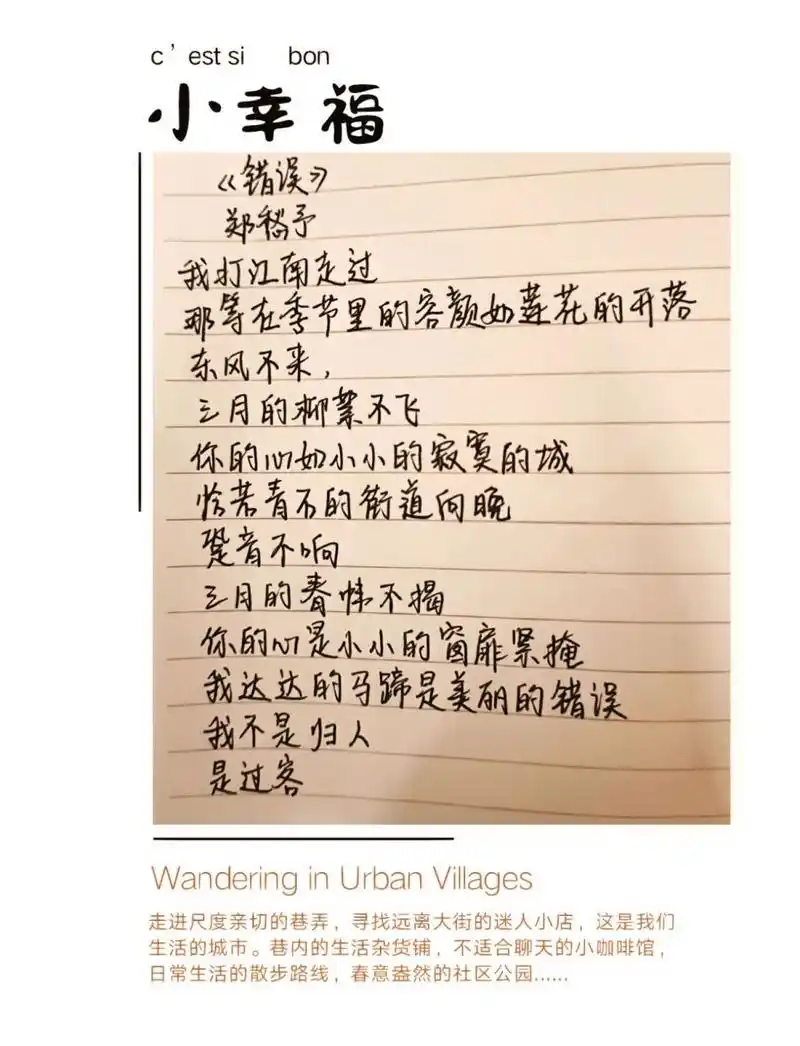 c’est si bon
小幸福
《错误》
郑愁予
我打江南走过
那等在季节里的容颜如莲花的开落
东风不来，
三月的柳絮不飞
你的心如小小的寂寞的城
恰若青石的街道向晚
跫音不响
三月的春帏不揭
你的心是小小的窗扉紧掩
我达达的马蹄是美丽的错误
我不是归人
是过客
Wandering in Urban Villages
走进尺度亲切的巷弄，寻找远离大街的迷人小店，这是我们
生活的城市。巷内的生活杂货铺，不适合聊天的小咖啡馆，
日常生活的散步路线，春意盎然的社区公园......